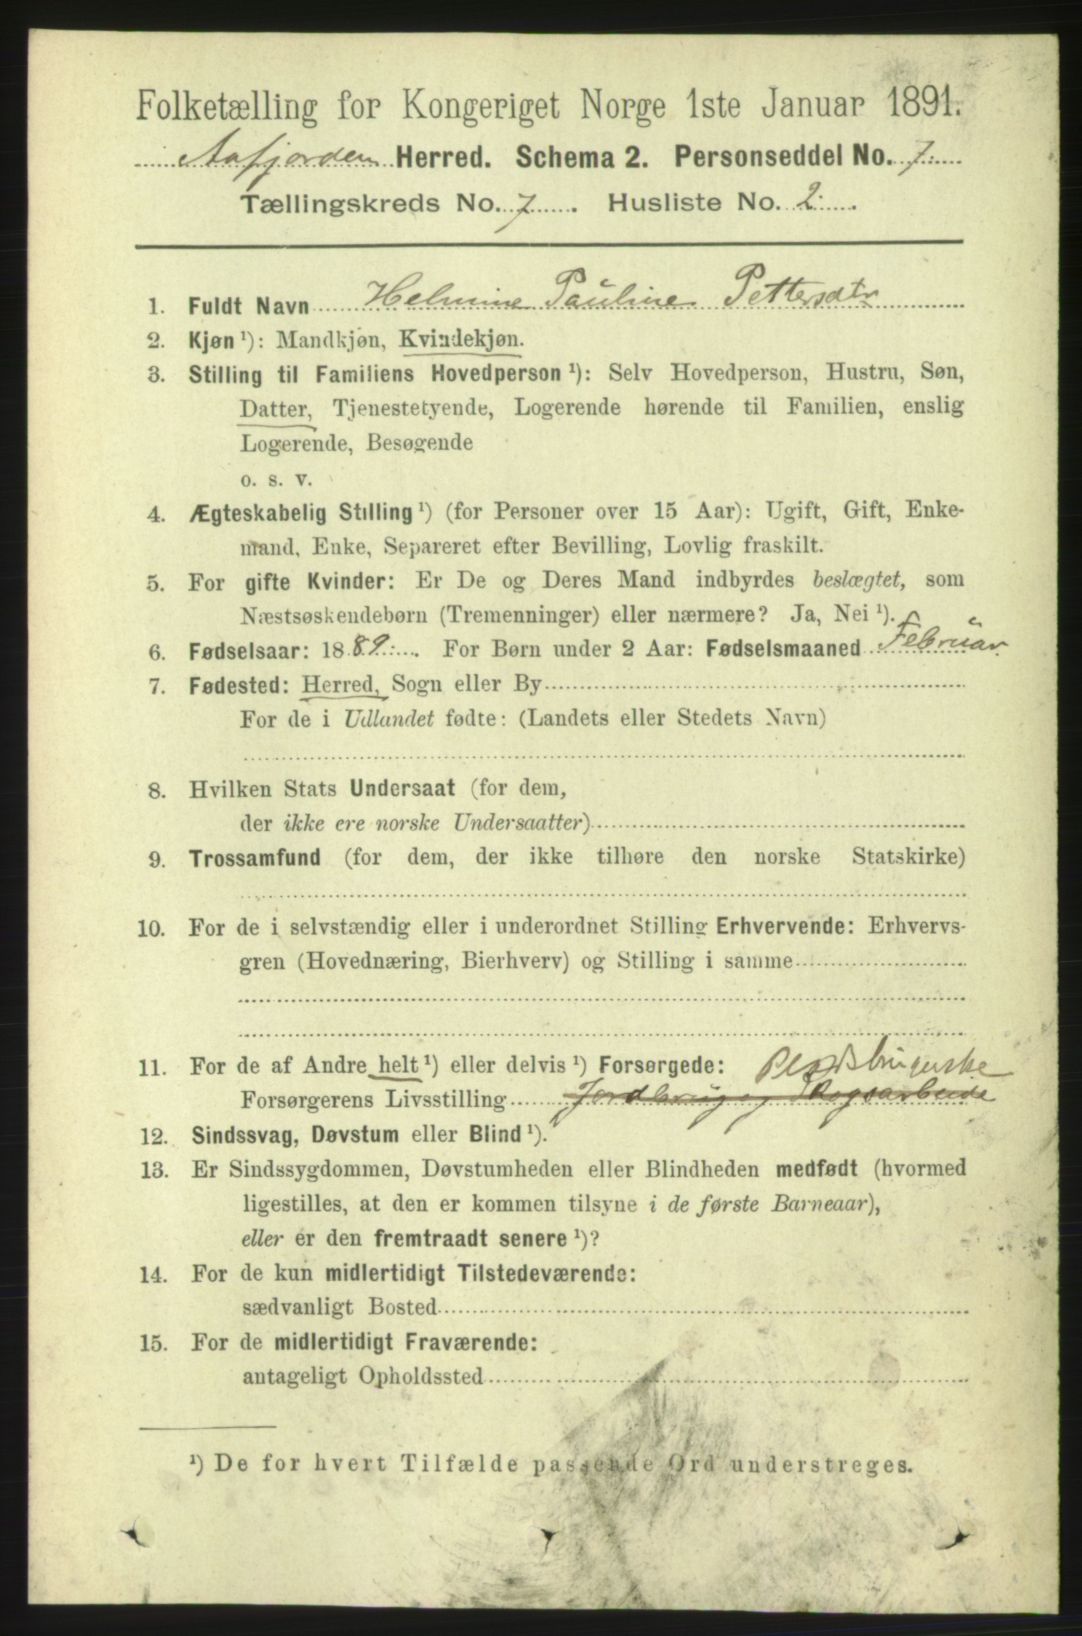 Folketælling for Kongeriget Norge 1ste Januar 1891.
Aafjorden Herred. Schema 2. Personseddel No. 7.
Tællingskreds No. 7. Husliste No. 2.
1. Fuldt Navn Helmine Pauline Pettersdtr
2. Kjøn ¹): Mandkjøn, Kvindekjøn.
3. Stilling til Familiens Hovedperson ¹): Selv Hovedperson, Hustru, Søn,
Datter, Tjenestetyende, Logerende hørende til Familien, enslig
Logerende, Besøgende
o. s. v.
4. Ægteskabelig Stilling ¹) (for Personer over 15 Aar): Ugift, Gift, Enke-
mand, Enke, Separeret efter Bevilling, Lovlig fraskilt.
5. For gifte Kvinder: Er De og Deres Mand indbyrdes beslægtet, som
Næstsøskendebørn (Tremenninger) eller nærmere? Ja, Nei ¹).
6. Fødselsaar: 1889. For Børn under 2 Aar: Fødselsmaaned Februar
7. Fødested: Herred, Sogn eller By
For de i Udlandet fødte: (Landets eller Stedets Navn)
8. Hvilken Stats Undersaat (for dem,
der ikke ere norske Undersaatter)
9. Trossamfund (for dem, der ikke tilhøre den norske Statskirke)
10. For de i selvstændig eller i underordnet Stilling Erhvervende: Erhvervs-
gren (Hovednæring, Bierhverv) og Stilling i samme
11. For de af Andre helt ¹) eller delvis ¹) Forsørgede:
Forsørgerens Livsstilling Jordbrug og Skogsarbeide
12. Sindssvag, Døvstum eller Blind ¹).
13. Er Sindssygdommen, Døvstumheden eller Blindheden medfødt (hvormed
ligestilles, at den er kommen tilsyne i de første Barneaar),
eller er den fremtraadt senere ¹)?
14. For de kun midlertidigt Tilstedeværende:
sædvanligt Bosted
15. For de midlertidigt Fraværende:
antageligt Opholdssted
¹) De for hvert Tilfælde passende Ord understreges.